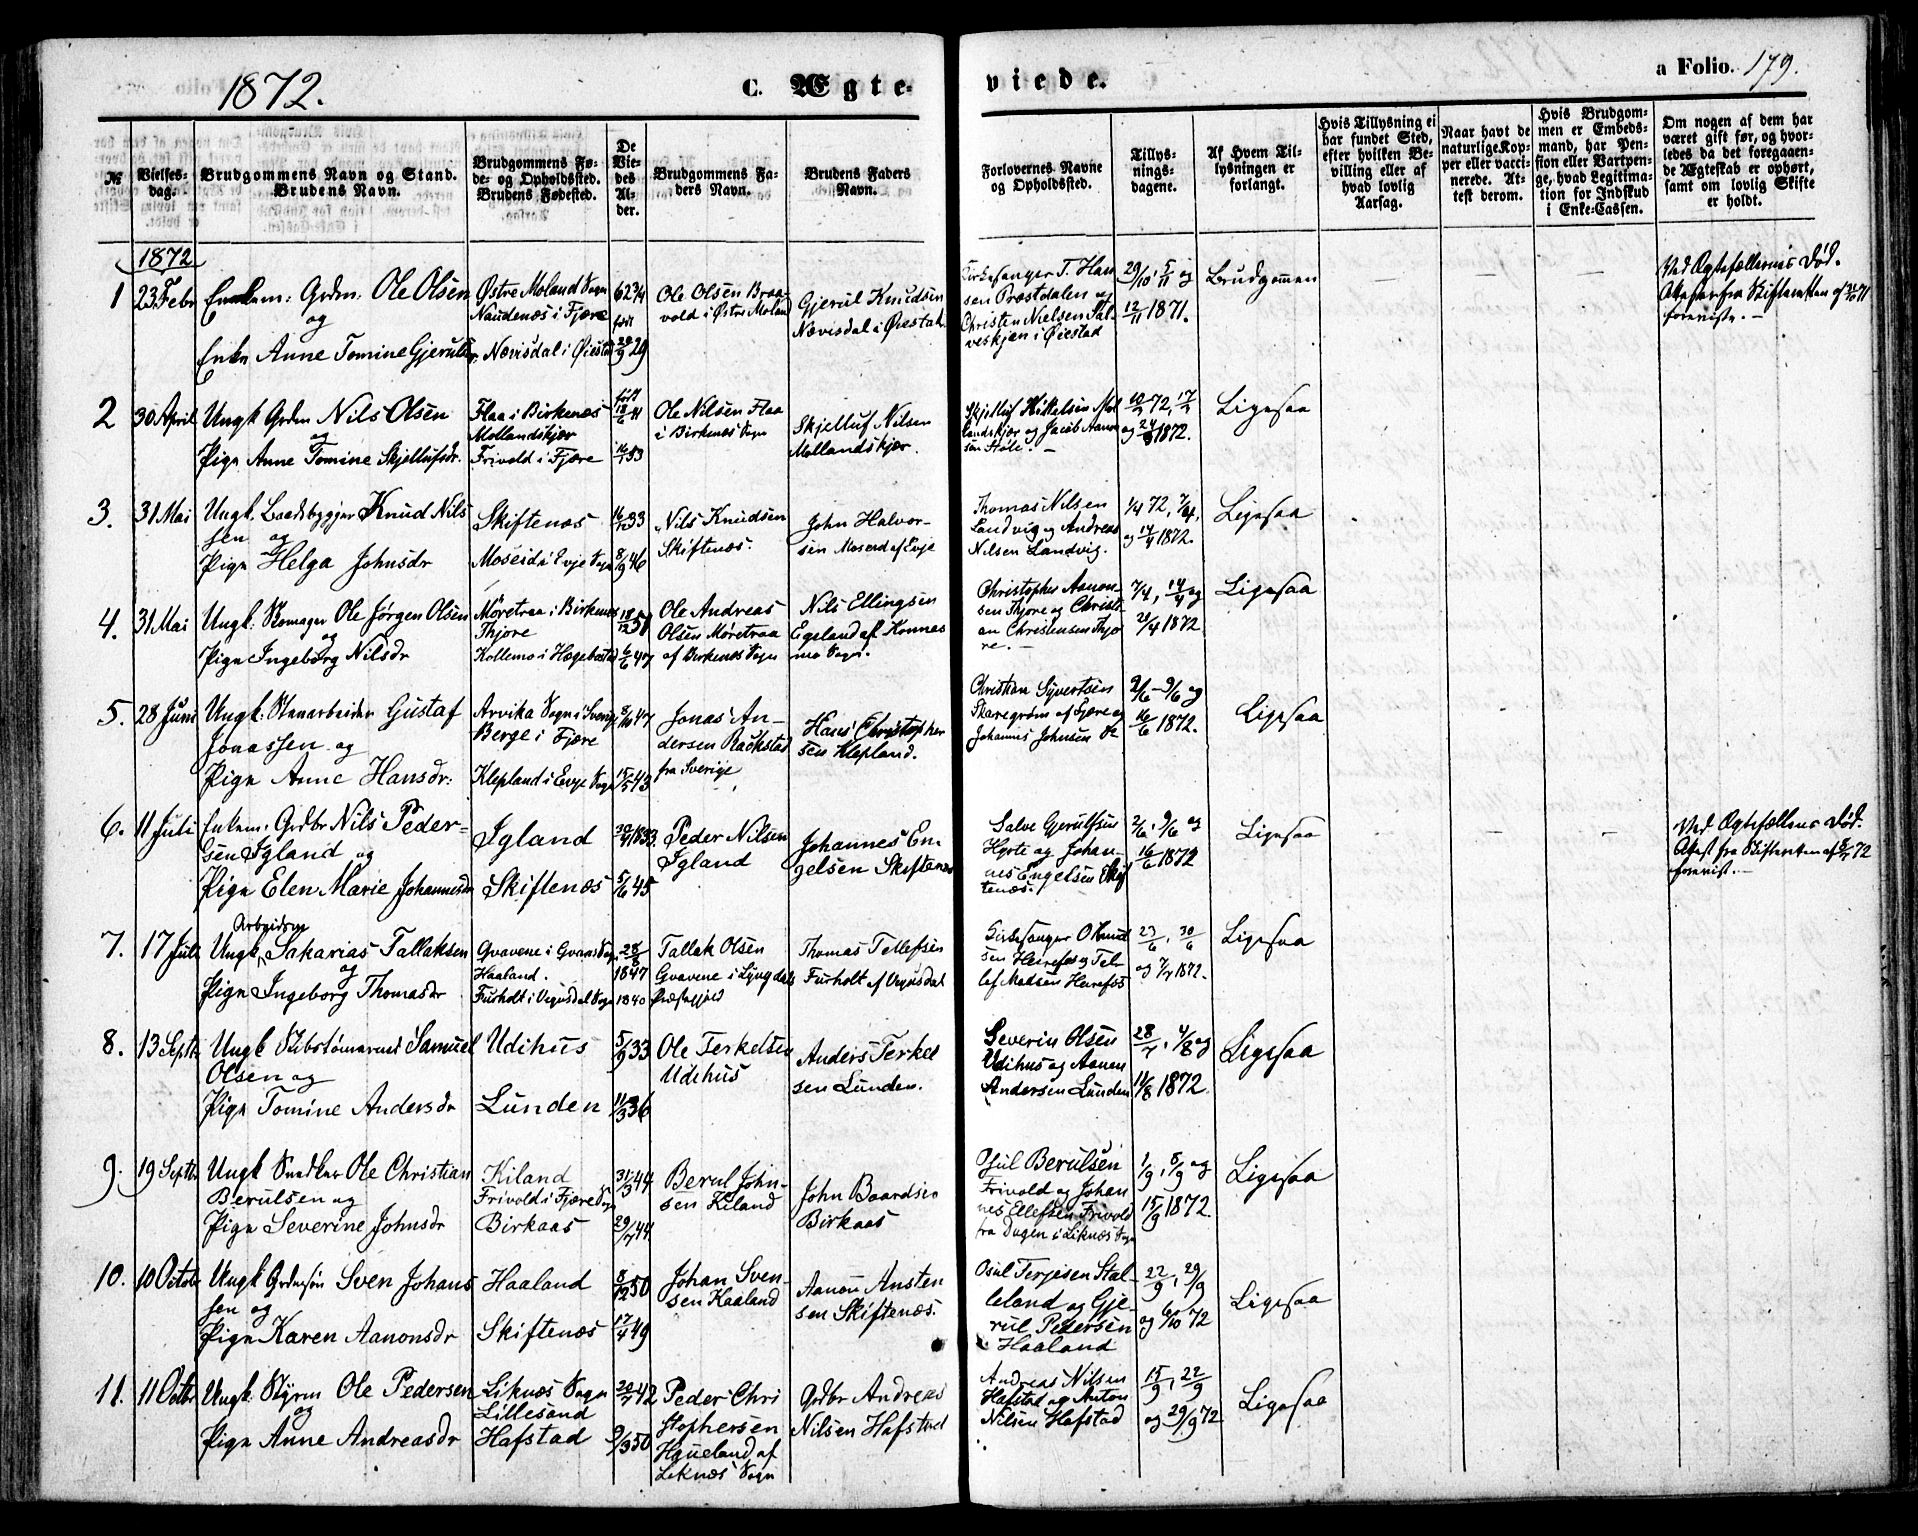 1872.
C. Ægte-
viede.
a Folio. 179.
№
Vielses-
dag.
Brudgommens Navn og Stand.
Brudens Navn.
Brudgommens Fø-
de- og Opholdssted.
Brudens Fødested.
De
Vie-
des
Al-
der.
Brudgommens Fa-
ders Navn.
Brudens Faders
Navn.
Forlovernes Navne
og Opholdssted.
Tillys-
nings-
dagene.
Af Hvem Til-
lysningen er
forlangt.
Hvis Tillysning ei
har fundet Sted,
efter hvilken Be-
villing eller af
hvad lovlig
Aarsag.
Naar havt de
naturlige Kop-
per eller vacci-
nerede. At-
test derom.
Hvis Brudgom-
men er Embeds-
mand, har Pen-
sion eller Vartpen-
ge, hvad Legitima-
tion for Indskud
i Enke-Cassen.
Om nogen af dem har
været gift før, og hvor-
ledes da det foregaaen-
de Ægteskab er ophørt,
samt om lovlig Skifte
er holdt.
1872
1 23 Febr
Enkem: Grdm: Ole Olsen
og
Enke Anne Tomine Gjerulsdr
Østre Moland Sogn
Naudenæs i Fjære
Nævisdal i Øiestad
62 3/4
født
20/9 29
Ole Olsen Braa-
vold i Østre Moland
Gjerul Knudsen
Nævisdal i Øiestad.
Kirkesanger T. Han
sen Præstdalen og
Christen Nielsen Sal-
veskjæn i Øiestad
29/10, 5/11 og
12/11 1871.
Brudgommen
Ved Ægtefællernes Død.
forevist. -
2 30 April
Ungk Grdm Nils Olsen
og
Pige Anne Tomine Skjellufsdr.
Flaa i Birkenæs
Mollandskjær
Frivold i Fjære
født
18/6 41
16/1 53
Ole Nilsen Flaa
i Birkenæs Sogn
Skjelluf Nilsen
Mollandskjær.
Skjelluf Mikelsen Mol
landskjær og Jacob Aanon
sen Støle. -
10/3 72, 17/3
og 24/3 1872.
Ligesaa
3. 31 Mai
Ungk. Baadsbygger Knud Nils
sen og
Pige Helga Johnsdr
Skiftenæs
Moseid i Evje Sogn
16/1 33
8/9 46
Nils Knudsen
Skiftenæs.
John Halvor-
sen Moseid af Evje
Thomas Nilsen
Landvig og Andreas
Nilsen Landvig.
1/4 72, 7/4,
og 14/4 1872.
Ligesaa
4. 31 Mai
Ungk: Skomager Ole Jørgen Olsen
og
Pige Ingeborg Nilsdr
Møretraa i Birkenæs
Thjore
Kollemo i Hægebostad
18/12 51
6/6 47
Ole Andreas
Olsen Møretraa
af Birkenæs Sogn
Nils Ellingsen
Egeland af Konnes
mo Sogn.
Christopher Aanon-
sen Thjore og Christi-
an Christensen Thjo
re. -
7/4, 14/4 og
21/4 1872
Ligesaa
5. 28 Juni
Ungk: Stenarbeider Gustaf
Jonassen og
Pige Anne Hansdr:
Arvika Sogn i Sverige
Berge i Fjære
Klepland i Evje Sogn
8/10 47
15/5 43
Jonas An-
dersen Rackstad
fra Sverige
Hans Christopher
sen Klepland.
Christian Syvertsen
Skaregrøm af Fjære og
Johannes Johnsen
2/6 - 9/6 og
16/6 1872.
Ligesaa
6. 11 Juli
Enkem: Grdbr Nils Peder-
sen Igland og
Pige Elen Marie Johannesdr
Igland
Skiftenæs
20/4 1833.
5/6 45
Peder Nilsen
Igland
Johannes En-
gelsen Skiftenæs
Salve Gjerulfsen
Hørte og Johan-
nes Engelsen Skif
tenæs.
2/6, 9/6 og
16/6 1872
Ligesaa
Ved Ægtefællens Død.
forevist. -
7. 17 Juli
Arbeidsm
Ungk. Sakarias Tallaksen
og
Pige Ingeborg Thomasdr
Gvavene i Gvaas Sogn
Haaland.
Furholt i Vegusdal Sogn
28/8
1847
1840
Tallak Olsen
Gvavene i Lyngdals
Præstegjeld
Thomas Tellefsen
Furholt af Vegusdal
Kirkesanger O Knud
sen Heirefos og Tel-
lef Madsen Heirefos
23/6, 30/6
og 7/7 1872.
Ligesaa
8. 13 Septb
Ungk Skibstømmerm: Samuel
Olsen og
Pige Tomine Andersdr
Udihus
Lunden
5/9 33
11/3 36
Ole Terkelsen
Udihus
Anders Terkel
sen Lunden.
Severin Olsen
Udihus og Aanon
Andersen Lunden
28/7, 4/8 og
11/8 1872
Ligesaa
9. 19 Septb
Ungk Snedker Ole Christian
Berulsen og
Pige Severine Johnsdr
Kiland
Frivold i Fjære Sogn
Birkaas
31/3 44
29/7 44
Berul John-
sen Kiland
John Baardsen
Birkaas
Osul Berulsen
Frivold og Johan
nes Ellefsen Frivold
fra Dugen i Liknæs Sogn
1/9, 8/9 og
15/9 1872.
Ligesaa
10. 10 Octob
Ungk Grdmsøn Sven Johans
sen og
Pige Karen Aanonsdr
Haaland
Skiftenæs
8/12 50
17/4 49
Johan Sven-
sen Haaland
Aanon Ansten
sen Skiftenæs.
Osul Terjesen Stal-
leland og Gje-
rul Pedersen
Haaland
22/9, 29/9
og 6/10 72
Ligesaa
11. 11 Octbr
Ungk. Styrm Ole Pedersen
og
Pige Anne Andreasdr
Liknæs Sogn
Lillesand
Hafstad
20/7 42
9/3 50
Peder Chri
stophersen
Haueland af
Liknæs Sogn
Grdbr Andreas
Nilsen Hafstad
Andreas Nilsen
Hafstad og Anton
Nilsen Hafstad
15/9, 22/9
og 29/9 72
Ligesaa